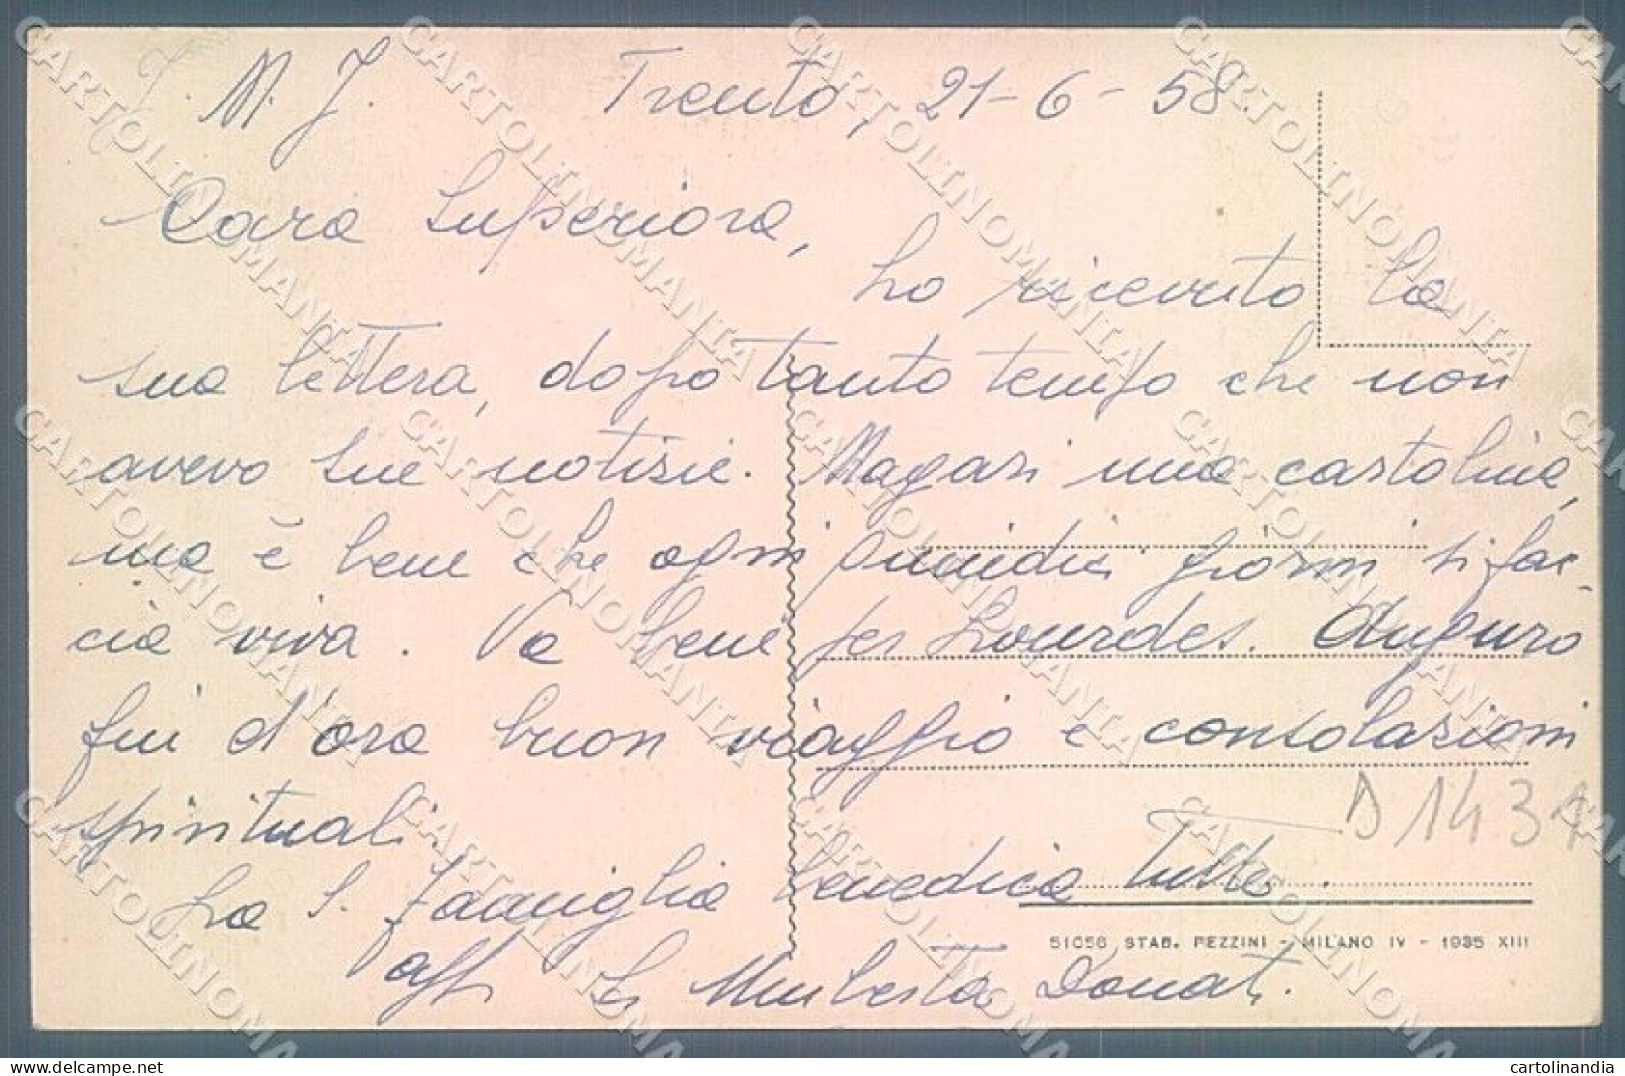 J. M. J. Trento, 21-6-58
Cara Superiora,
ho ricevuto la
sua lettera, dopo tanto tempo che non
avevo sue notizie. Magari una cartolina,
ma è bene che ogni quindici giorni si fac-
cia viva. Va bene per Lourdes. Auguro
fin d'ora buon viaggio e consolazioni
spirituali.
La S. Famiglia benedica tutte.
aff Sr Umberta Donati.
D 1431
51056 STAB. PEZZINI - MILANO IV - 1935 XIII
CARTOLINOMANTIA
cartolinandia